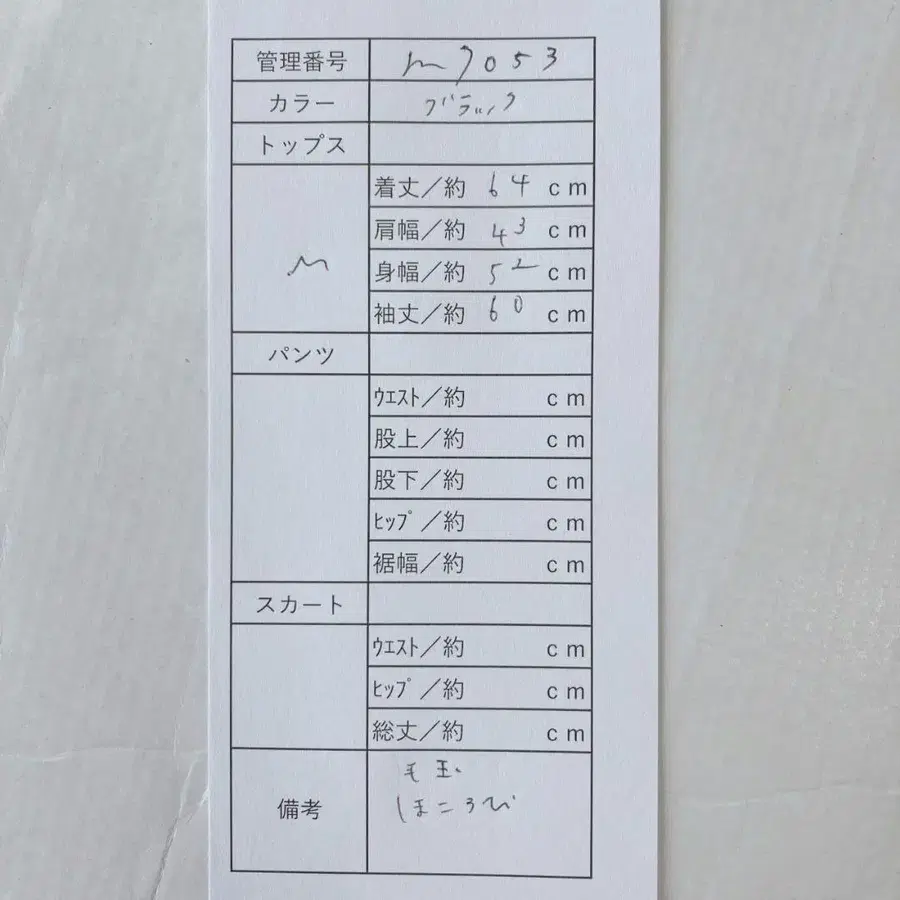 管理番号 m7053
カラー ブラック
トップス
M
着丈／約 64 cm
肩幅／約 43 cm
身幅／約 52 cm
袖丈／約 60 cm
パンツ
ｳｴｽﾄ／約 cm
股上／約 cm
股下／約 cm
ﾋｯﾌﾟ／約 cm
裾幅／約 cm
スカート
ｳｴｽﾄ／約 cm
ﾋｯﾌﾟ／約 cm
総丈／約 cm
備考
毛玉、
ほころび